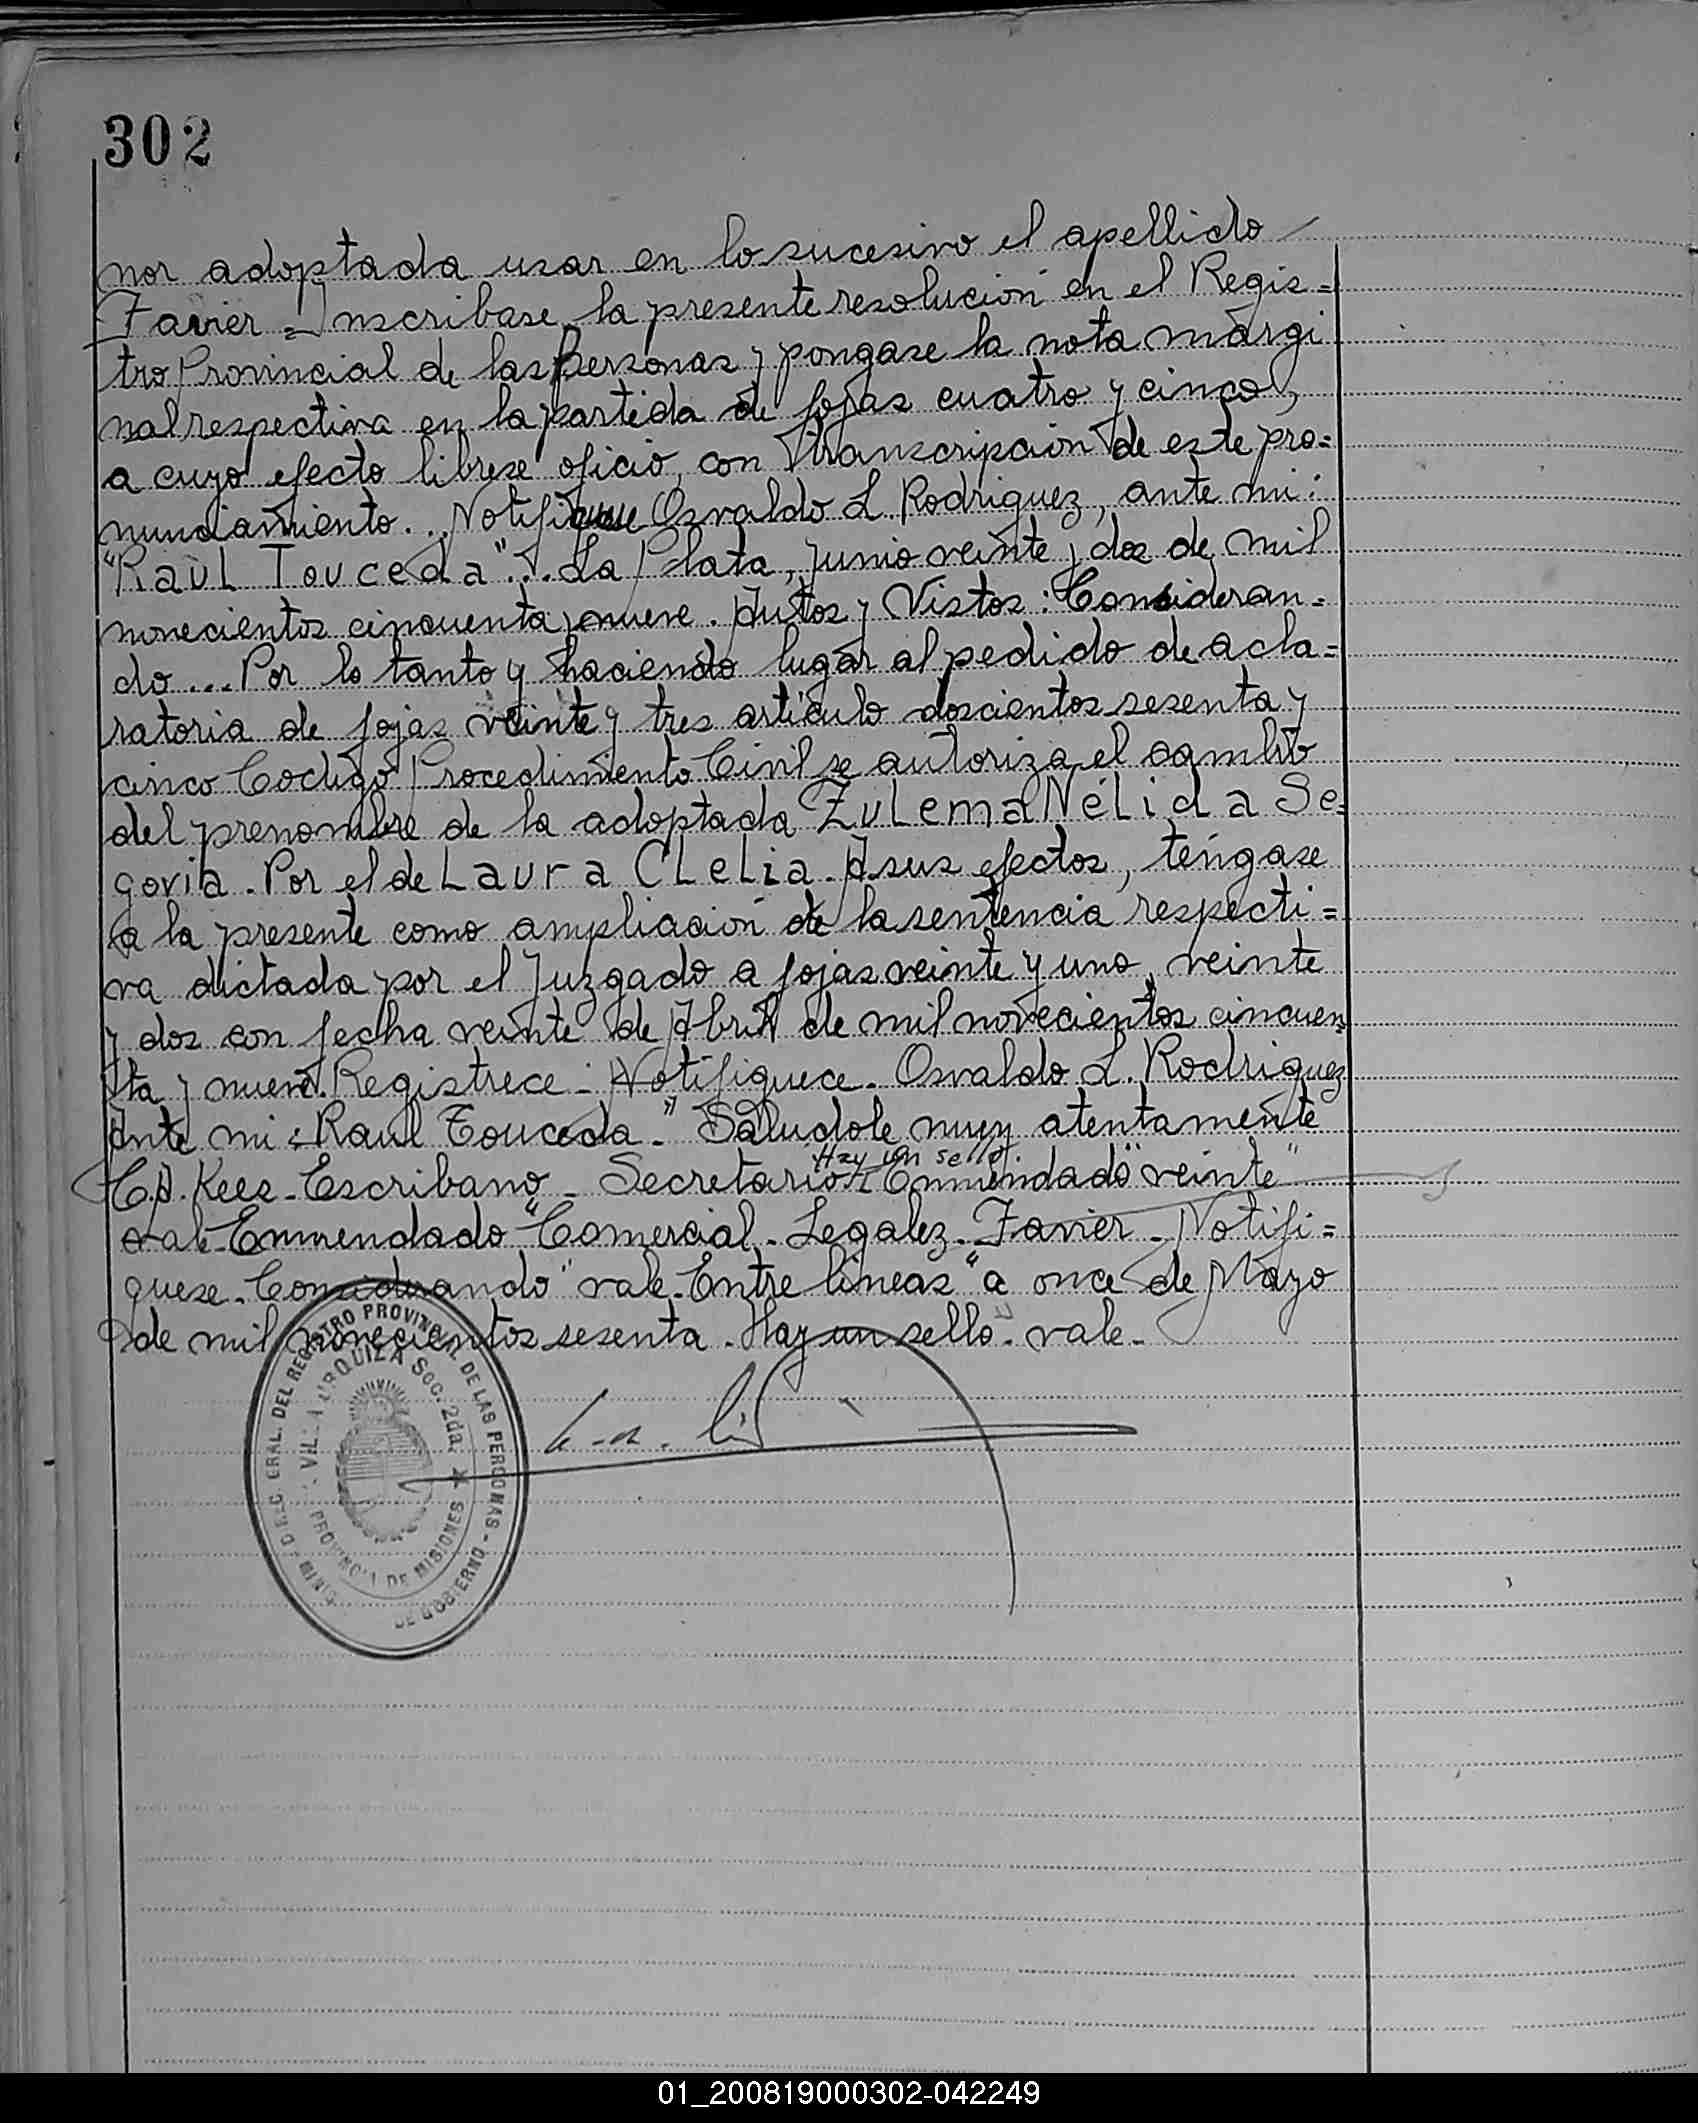 302
nor adoptada usar en lo sucesivo el apellido
Favier = Inscribase la presente resolución en el Regis=
tro Provincial de las Personas y pongase la nota margi
nal respectiva en la partida de fojas cuatro y cinco,
a cuyo efecto librese oficio, con transcripción de este pro=
nunciamiento... Notifiquese Osvaldo L. Rodriguez, ante mi:
"Raul Touceda"... La Plata, junio veinte y dos de mil
novecientos cincuenta y nueve. Autos y Vistos: Consideran=
do... Por lo tanto y haciendo lugar al pedido de acla=
ratoria de fojas veinte y tres artículo doscientos sesenta y
cinco Codigo Procedimiento Civil se autoriza el cambio
del prenombre de la adoptada Zulema Nélida Se=
govia. Por el de Laura Clelia. A sus efectos, téngase
a la presente como ampliación de la sentencia respecti=
va dictada por el Juzgado a fojas veinte y uno, veinte
y dos con fecha veinte de Abril de mil novecientos cincuen=
ta y nueve. Registrece - Notifiquece. Osvaldo L. Rodriguez
Ante mi: Raul Touceda." Saludole muy atentamente
Hay un sello.
C.A. Kees - Escribano - Secretario - Enmendado "veinte"
vale - Enmendado "Comercial - Legalez - Favier - Notifi=
quese - Considerando" vale - Entre lineas "a once de Mayo
de mil novecientos sesenta. Hay un sello" - vale -
GRAL. DEL REGISTRO PROVINCIAL DE LAS PERSONAS -
DE GOBIERNO
MINIS
URQUIZA Soc. 2da.
PROVINCIA DE MISIONES
01_200819000302-042249